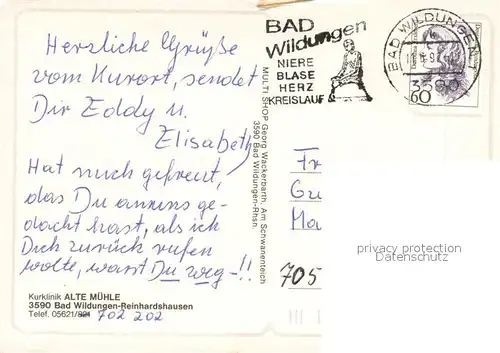 Herzliche Grüße
vom Kurort, sendet
Dir Eddy u.
Elisabeth
Hat mich gefreut,
das Du anruns ge-
dacht hast, als ich
Dich zurück rufen
wolte, warst Du weg-!!
Kurklinik ALTE MÜHLE
3590 Bad Wildungen-Reinhardshausen
Telef. 05621/821 702 202
MULTI SHOP Georg Wackerbarth, Am Schwanenteich
3590 Bad Wildungen-Rhsn.
BAD
Wildungen
NIERE
BLASE
HERZ
KREISLAUF
BAD WILDUNGEN 1
3590
60
Fr
Gu
Ma
705
privacy protection
Datenschutz